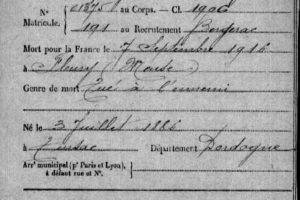 N° 01375 au Corps. — Cl. 1906
Matricule. 191 au Recrutement Bergerac
Mort pour la France le 7 Septembre 1916
à Fleury (Meuse)
Genre de mort Tué à l'ennemi
Né le 3 Juillet 1886
à Tursac Département Dordogne
Arr' municipal (p' Paris et Lyon),
à défaut rue et N°.